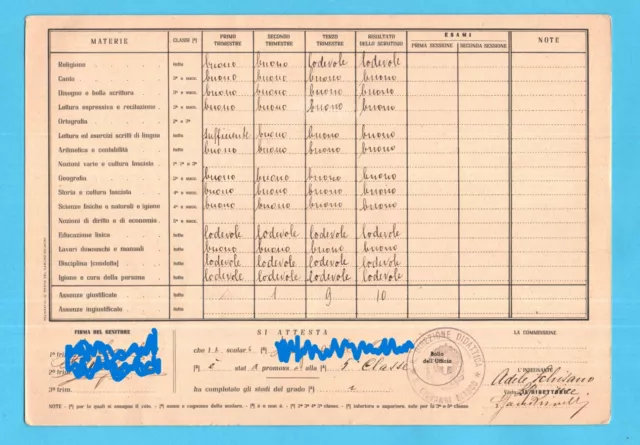 MATERIE CLASSE (¹) PRIMO TRIMESTRE SECONDO TRIMESTRE TERZO TRIMESTRE RISULTATO DELLO SCRUTINIO ESAMI PRIMA SESSIONE SECONDA SESSIONE NOTE
Religione tutte buono buono lodevole lodevole
Canto 3ª e succ. buono buono buono buono
Disegno e bella scrittura 3ª e succ. buono buono buono buono
Lettura espressiva e recitazione 3ª e succ. buono buono buono buono
Ortografia 2ª e 3ª
Lettura ed esercizi scritti di lingua tutte sufficiente buono buono buono
Aritmetica e contabilità tutte buono buono buono buono
Nozioni varie e cultura fascista 1ª 2ª e 3ª
Geografia 3ª e succ. buono buono buono buono
Storia e cultura fascista 4ª e succ. buono buono buono buono
Scienze fisiche e naturali e igiene 4ª e succ. buono buono buono buono
Nozioni di diritto e di economia 5ª e succ.
Educazione fisica tutte lodevole lodevole lodevole lodevole
Lavori donneschi e manuali tutte buono buono buono buono
Disciplina (condotta) tutte lodevole lodevole lodevole lodevole
Igiene e cura della persona tutte lodevole lodevole lodevole lodevole
Assenze giustificate tutte 1 9 10
Assenze ingiustificate tutte
FIRMA DEL GENITORE
1º trim.
2º trim.
3º trim.
SI ATTESTA
che scolar (²)
(³) è stat promoss alla 5ª Classe
ha completato gli studi del grado (⁴)
DIREZIONE DIDATTICA
Bollo dell'Ufficio
LA COMMISSIONE
L'INSEGNANTE
Adele
IL DIRETTORE